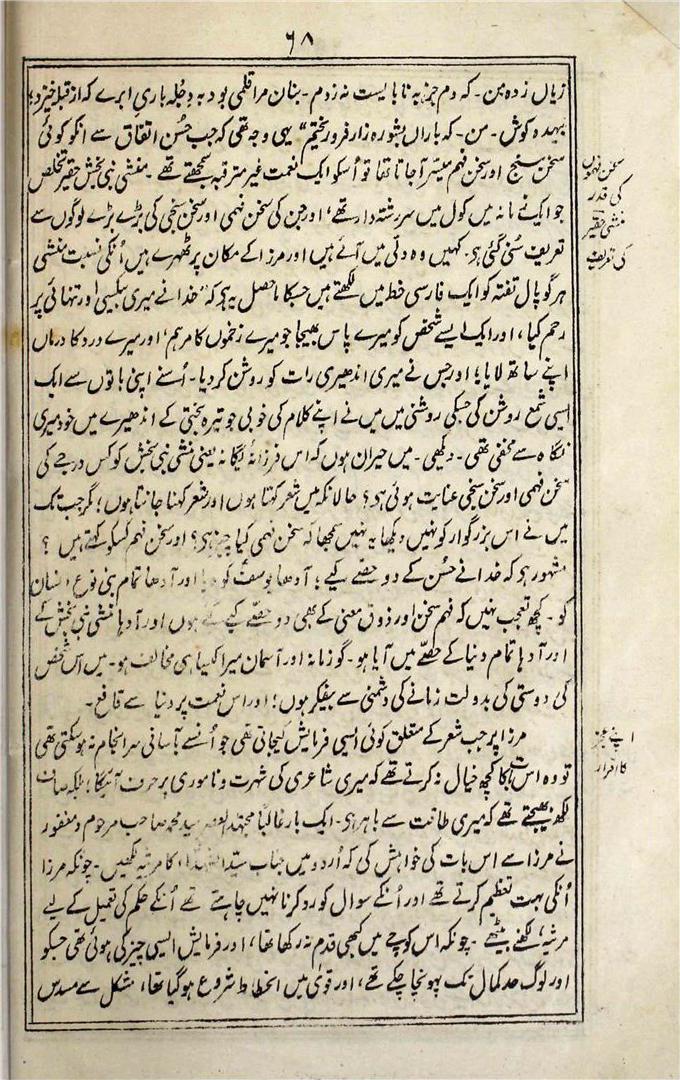 ۶۸
زیاں زدہ من۔ کہ دم جز بہ نابایست نہ زدم۔ بنان مرا قلمی بود بہ دجلہ باریِ ابرے کہ از قبلہ خیزد؛
بیہدہ کوش۔ من۔ کہ باراں بشورہ زار فرو ریختم“ یہی وجہ تھی کہ جب حُسن اتفاق سے انکو کوئی
سخن سنج اور سخن فہم میسر آجاتا تھا تو اُسکو ایک نعمت غیر مترقبہ سمجھتے تھے۔ منشی نبی بخش حقیر تخلص
جو ایک زمانہ میں کول میں سررشتہ دار تھے، اور جن کی سخن فہمی اور سخن سنجی کی بڑے بڑے لوگوں سے
تعریف سُنی گئی ہی۔ کہیں وہ دلّی میں آئے ہیں اور مرزا کے مکان پر ٹھہرے ہیں اُنکی نسبت منشی
ہرگوپال تفتہ کو ایک فارسی خط میں لکھتے ہیں جسکا ماحصل یہ ہی کہ ”خدا نے میری بیکسی اور تنہائی پر
رحم کیا، اور ایک ایسے شخص کو میرے پاس بھیجا جو میرے زخموں کا مرہم، اور میرے درد کا درماں
اپنے ساتھ لایا؛ اور جس نے میری اندھیری رات کو روشن کر دیا۔ اُسنے اپنی باتوں سے ایک
ایسی شمع روشن کی جسکی روشنی میں میں نے اپنے کلام کی خوبی جو تیرہ بختی کے اندھیرے میں خود میری
نگاہ سے مخفی تھی۔ دیکھی۔ میں حیران ہوں کہ اس فرزانۂ یگانہ یعنی منشی نبی بخش کو کس درجے کی
سخن فہمی اور سخن سنجی عنایت ہوئی ہی؟ حالانکہ میں شعر کہتا ہوں اور شعر کہنا جانتا ہوں؛ مگر جب تک
میں نے اس بزرگوار کو نہیں دیکھا یہ نہیں سمجھا کہ سخن فہمی کیا چیز ہی؟ اور سخن فہم کسکو کہتے ہیں ؟
مشہور ہی کہ خدا نے حُسن کے دو حصّے کیے؛ آدھا یوسف کو دیا اور آدھا تمام بنی نوع انسان
کو۔ کچھ تعجب نہیں کہ فہم سخن اور ذوقِ معنی کے بھی دو حصّے کیے گئے ہوں اور آدھا منشی نبی بخش کے
اور آدھا تمام دنیا کے حصّے میں آیا ہو۔ گو زمانہ اور آسمان میرا کیسا ہی مخالف ہو۔ میں اس شخص
کی دوستی کی بدولت زمانے کی دشمنی سے بیفکر ہوں؛ اور اس نعمت پر دنیا سے قانع۔
مرزا پر جب شعر کے متعلق کوئی ایسی فرمایش کیجاتی تھی جو اُنسے بآسانی سرانجام نہ ہوسکتی تھی
تو وہ اس بات کا کچھ خیال نہ کرتے تھے کہ میری شاعری کی شہرت و ناموری پر حرف آئیگا؛ بلکہ صاف
لکھ بھیجتے تھے کہ میری طاقت سے باہر ہی۔ ایک بار غالبًا مجتہد العصر سید محمد صاحب مرحوم و مغفور
نے مرزا سے اس بات کی خواہش کی کہ اُردو میں جناب سیّد الشہداء کا مرثیہ لکھیں۔ چونکہ مرزا
اُنکی بہت تعظیم کرتے تھے اور اُنکے سوال کو رد کرنا نہیں چاہتے تھے اُنکے حکم کی تعمیل کے لیے
مرثیہ لکھنے بیٹھے۔ چونکہ اس کوچے میں کبھی قدم نہ رکھا تھا، اور فرمایش ایسی چیز کی ہوئی تھی جسکو
اور لوگ حد کمال تک پہونچا چکے تھے، اور قویٰ میں انحطاط شروع ہو گیا تھا، مشکل سے مسدس
سخن فہموں
کی قدر
منشی حقیر
کی تعریف
اپنے عجز
کا اقرار